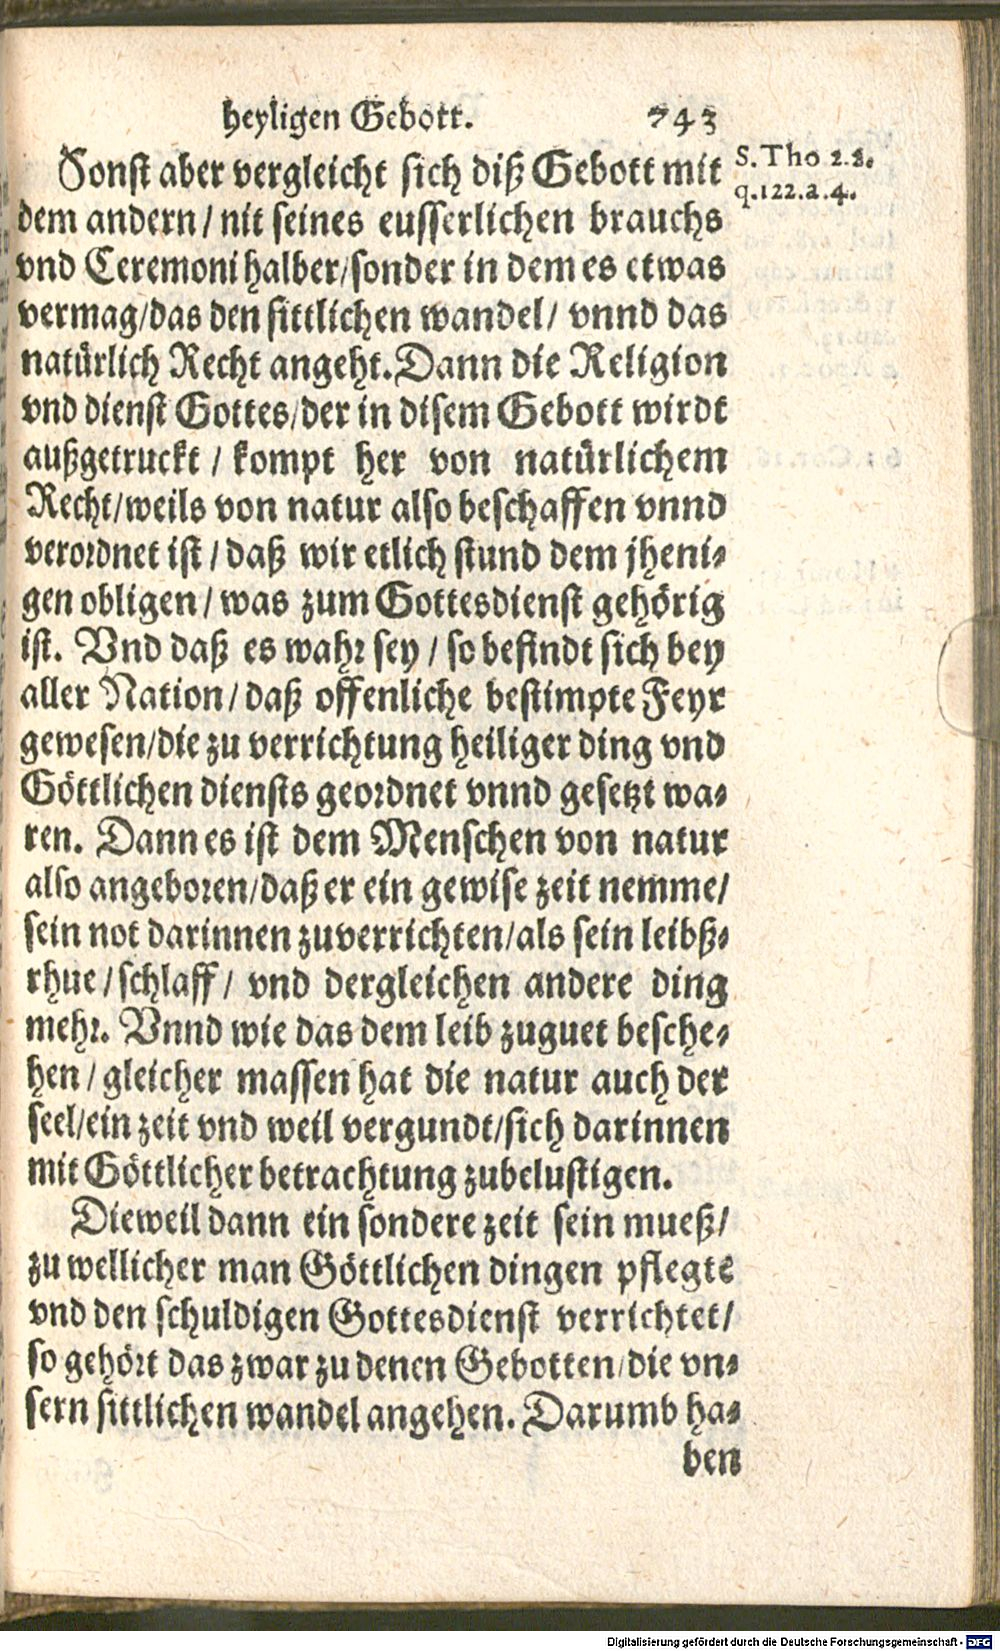 heyligen Gebott. 743
Sonst aber vergleicht sich diß Gebott mit
S. Tho 2.2.
q.122.a.4.
dem andern / nit seines eusserlichen brauchs
vnd Ceremoni halber/sonder in dem es etwas
vermag/das den sittlichen wandel/ vnnd das
natürlich Recht angeht. Dann die Religion
vnd dienst Gottes/der in disem Gebott wirdt
außgetruckt / kompt her von natürlichem
Recht/weils von natur also beschaffen vnnd
verordnet ist / daß wir etlich stund dem jheni-
gen obligen / was zum Gottesdienst gehörig
ist. Vnd daß es wahr sey / so befindt sich bey
aller Nation / daß offenliche bestimpte Feyr
gewesen/die zu verrichtung heiliger ding vnd
Göttlichen diensts geordnet vnnd gesetzt wa-
ren. Dann es ist dem Menschen von natur
also angeboren/daß er ein gewise zeit nemme/
sein not darinnen zuverrichten/als sein leibß-
rhue / schlaff / vnd dergleichen andere ding
mehr. Vnnd wie das dem leib zuguet besche-
hen / gleicher massen hat die natur auch der
seel/ein zeit vnd weil vergundt/sich darinnen
mit Göttlicher betrachtung zubelustigen.
Dieweil dann ein sondere zeit sein mueß/
zu wellicher man Göttlichen dingen pflegte
vnd den schuldigen Gottesdienst verrichtet/
so gehört das zwar zu denen Gebotten/die vn-
sern sittlichen wandel angehen. Darumb ha-
ben
Digitalisierung gefördert durch die Deutsche Forschungsgemeinschaft - DFG